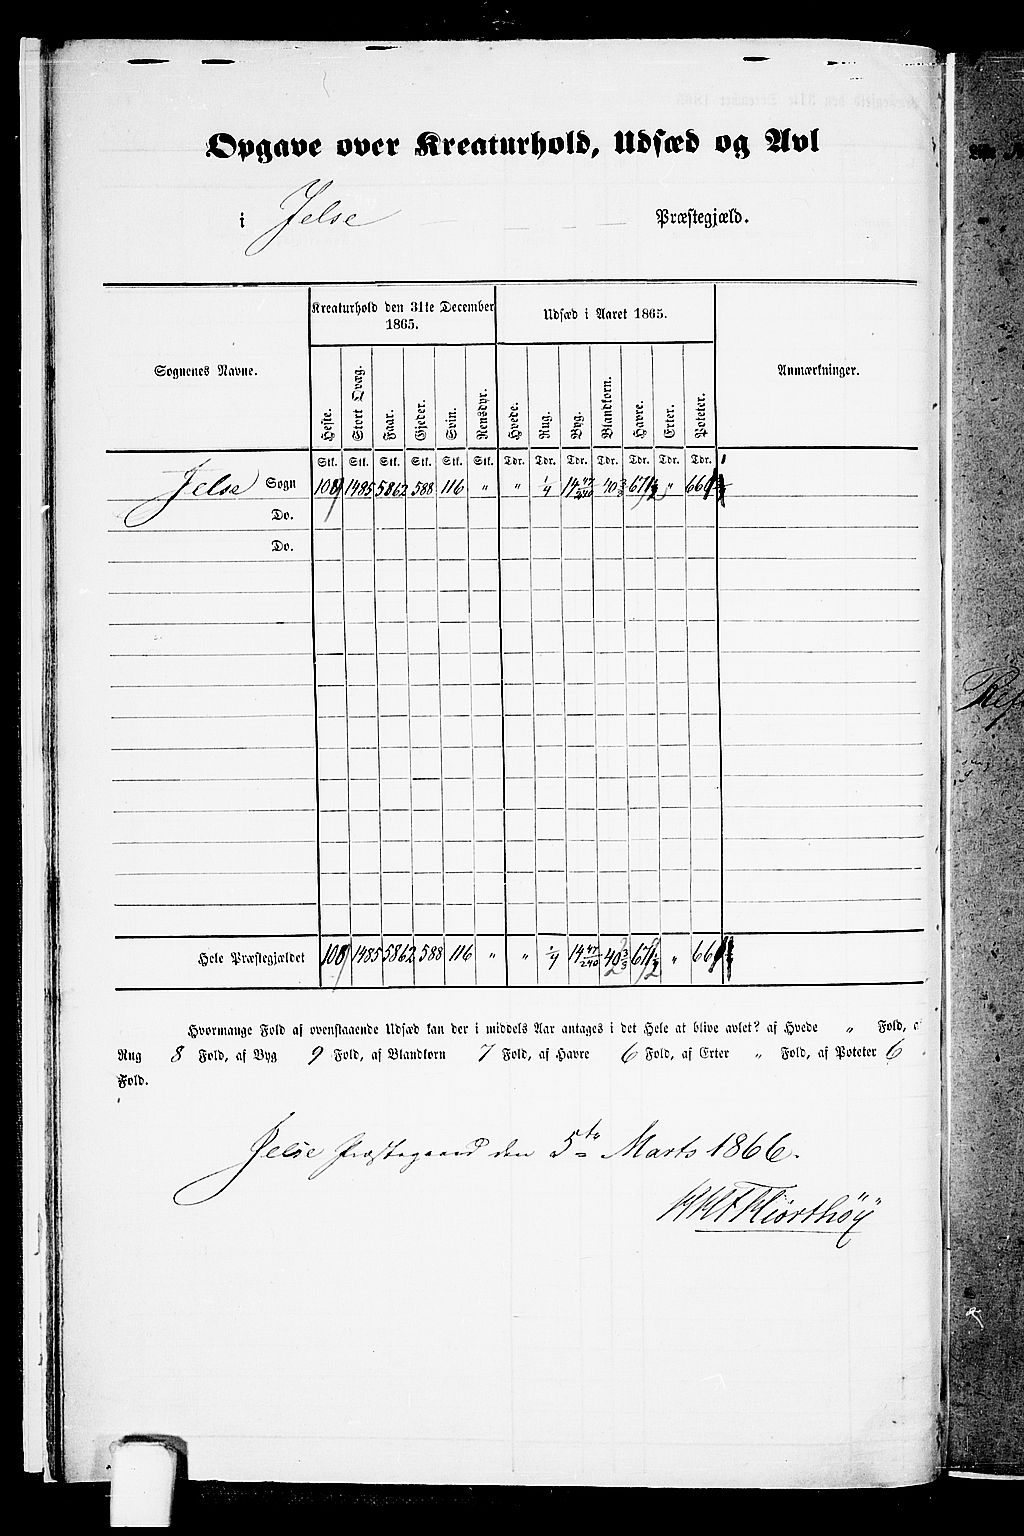 Opgave over Kreaturhold, Udsæd og Avl
i Jelse Præstegjæld.
Sognenes Navne. Kreaturhold den 31te December 1865. Udsæd i Aaret 1865. Anmærkninger.
Heste. Stort Qvæg. Faar. Gjeder. Svin. Rensdyr. Hvede. Rug. Byg. Blandkorn. Havre. Erter. Poteter.
Stk. Stk. Stk. Stk. Stk. Stk. Tdr. Tdr. Tdr. Tdr. Tdr. Tdr. Tdr.
Jelse Sogn 1485 5862 588 116 „ „ 1/4 14 47/240 „
Do.
Do.
Hele Præstegjældet 1485 5862 588 116 „ „ 1/4 14 47/240 „
Hvormange Fold af ovenstaaende Udsæd kan der i middels Aar antages i det Hele at blive avlet? af Hvede „ Fold, a
Rug 8 Fold, af Byg 9 Fold, af Blandkorn 7 Fold, af Havre 6 Fold, af Erter „ Fold, af Poteter 6
Fold.
Jelse Præstegaard den 5te Marts 1866.